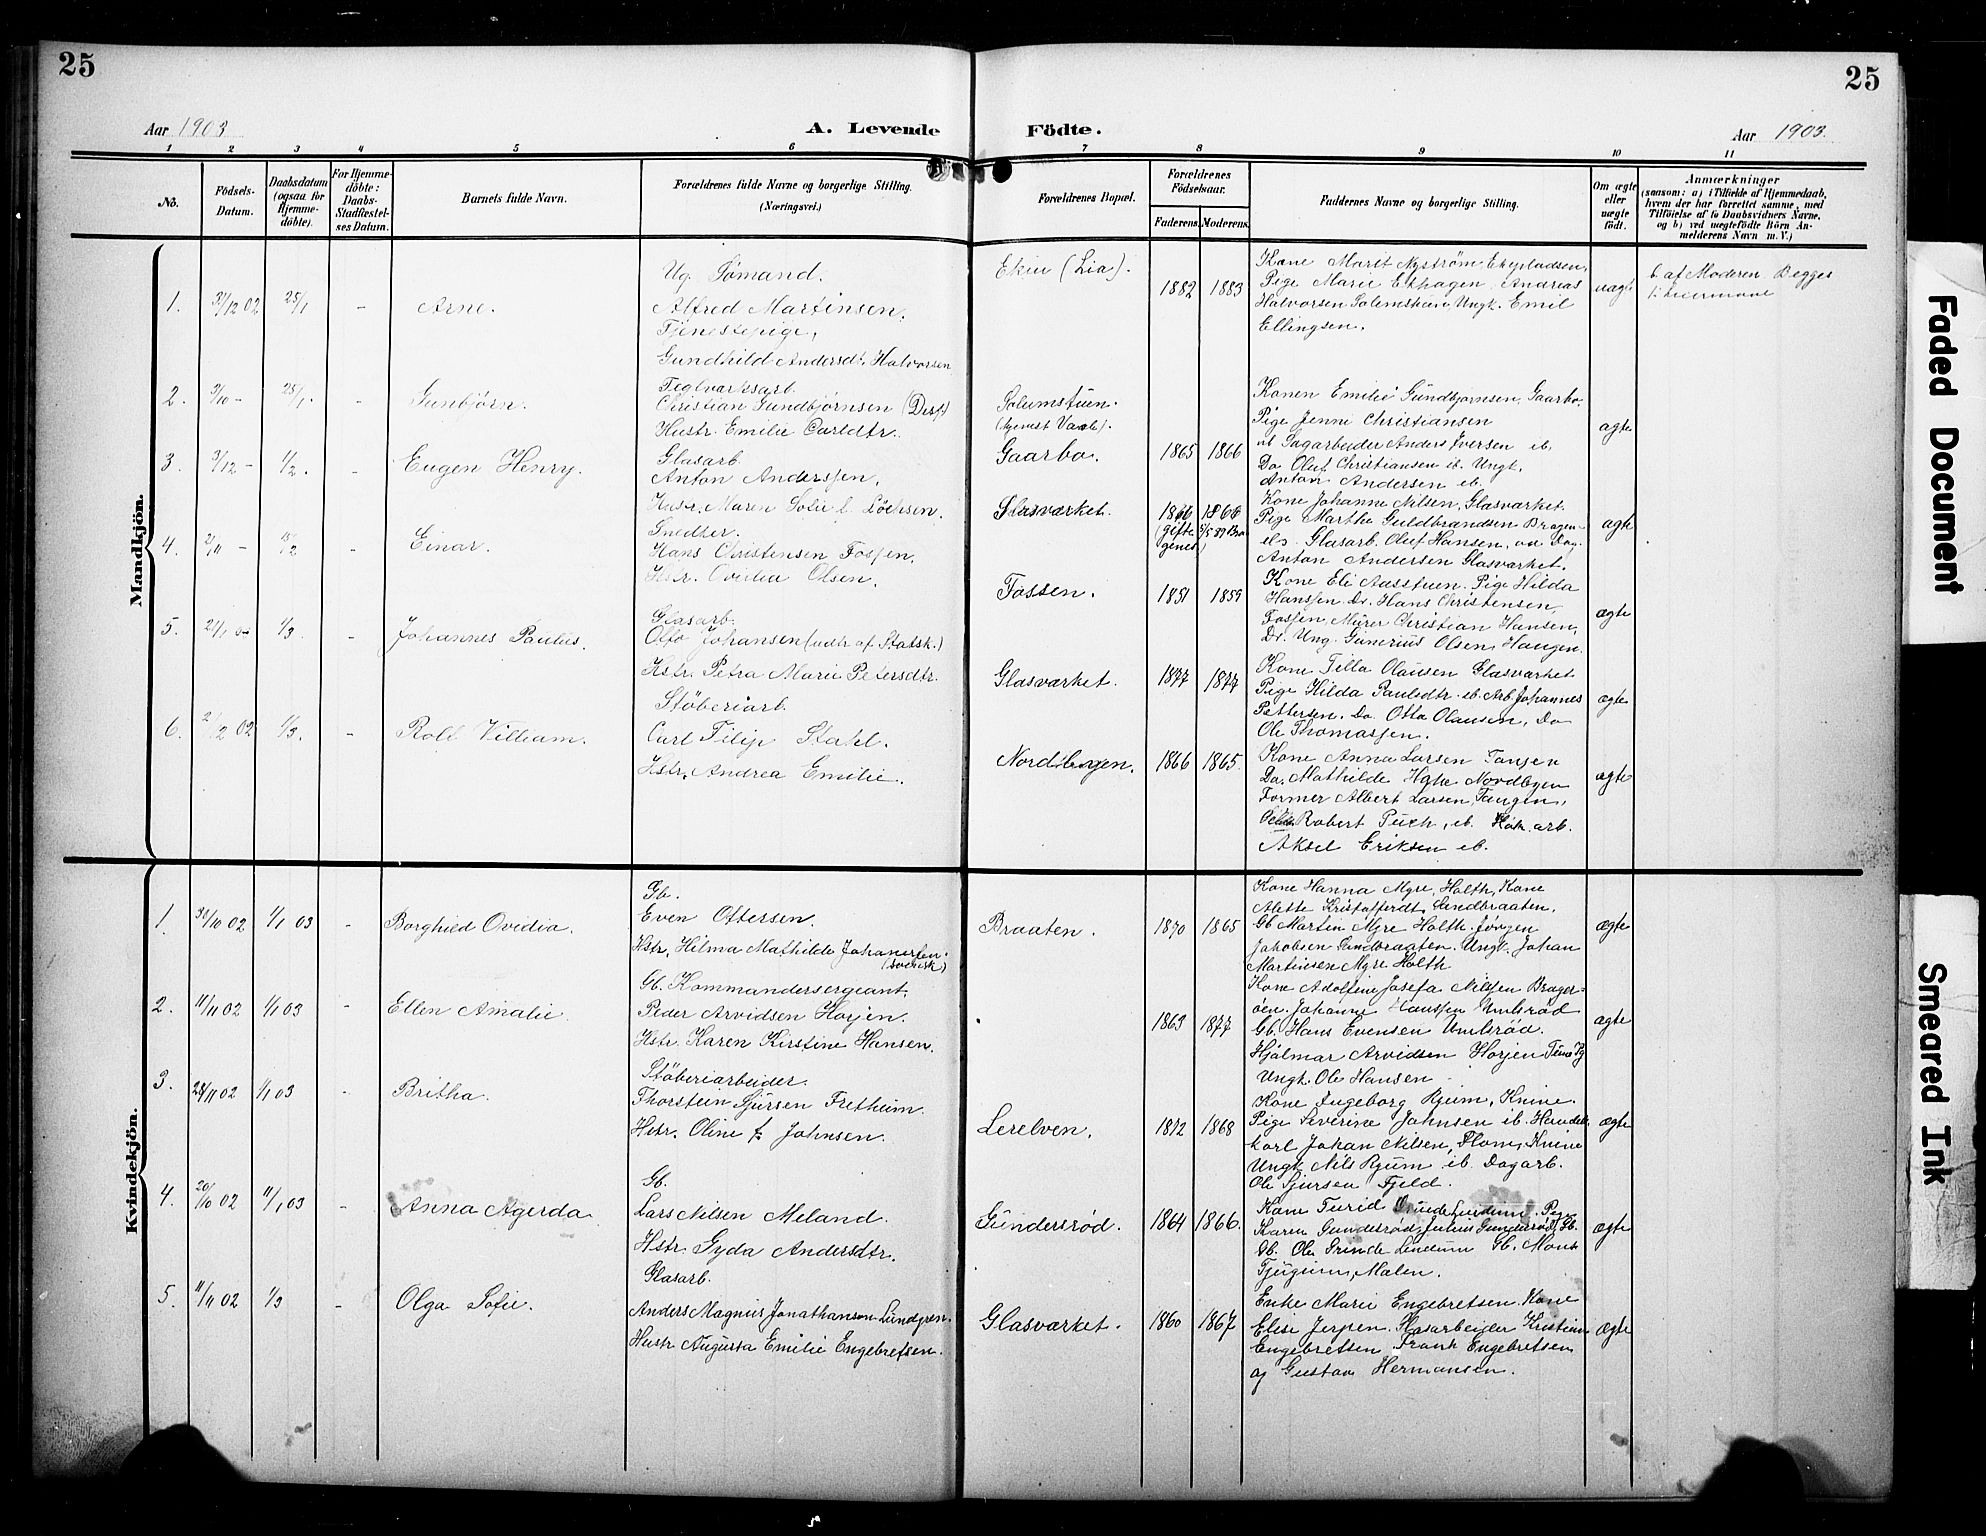 25
25
Aar 1903
A. Levende
Födte.
Aar 1903.
1 2 3 4 5 6 7 8 9 10 11
No.
Födsels-
Datum.
Daabsdatum
(ogsaa for
Hjemme-
döbte).
For Hjemme-
döbte:
Daabs-
Stadfæstel-
ses Datum.
Barnets fulde Navn.
Forældrenes fulde Navne og borgerlige Stilling.
(Næringsvei.)
Forældrenes Bopæl.
Forældrenes
Födselsaar.
Faderens. Moderens.
Faddernes Navne og borgerlige Stilling.
Om ægte
eller
uægte
födt.
Anmærkninger
(saasom: a) i Tilfælde af Hjemmedaab,
hvem der har forrettet samme, med
Tilföielse af to Daabsvidners Navne,
og b) ved uægtefödte Börn An-
melderens Navn m. V.)
Mandkjön.
1. 3/12 02 25/1 - Arne.
Ug. Sømand.
Alfred Martinsen.
Tjenestepige,
Gundhild Andersdt. Halvorsen
Ekin (Lia).
1882 1883
Kone Marit Nystrøm Ekepladsen,
Pige Marie Ekhagen. Andreas
Halvorsen Solemskein, Ungk. Emil
Ellingsen.
uægte
b. af Moderen. Begges
1. Leiermaal
2. 3/10 - 25/1. - Gunbjörn.
Teglværksarb.
Christian Gundbjörnsen (Diss.)
Hustr. Emilie Carldtr.
Solumstuen.
Gaarbo.
1865 1866
Konen Emilie Gundbjornsen, Gaarbo.
Pige Jenni Christiansen
Sagarbeider Anders Iversen ib.
Do Oluf Christiansen ib. Ungk.
Anton Andersen ib.
ægte
3. 3/12 - 1/2. - Eugen Henry.
Glasarb.
Anton Anderssen.
Hustr. Maren Sofie f. Löchsen.
Glasværket.
1866 1866
(Gifte
Kone Johanne Nilsen, Glasværket.
Pige Marthe Guldbrandsen Bragen-
Glasarb. Oluf Hansen,
Anton Andersen Glasværket.
ægte
4. 2/11 - 15/2 - Einar.
Snedker.
Hans Christensen Fossen.
Hstr. Ovidia Olsen.
Fossen.
1851 1859
Kone Eli Aasstuen. Pige Hilda
Hanssen. Dr. Hans Christensen,
Fossen, Murer Christian Hansen,
Dr. Ung. Gunerius Olsen, Haugen.
ægte
5. 21/1 03 1/3 - Johannes Paulus.
Glasarb.
Otto Johansen (udtr af Statsk.)
Hstr. Petra Marie Petersdtr.
Glasværket.
1877 1877
Kone Tilla Olausen Glasværket.
Pige Hilda Paulsdtr. ib. Arb. Johannes
Pettersen. Do. Otto Olausen, Do
Ole Thomassen.
ægte
6. 2/12 02 1/3. - Rolf Villiam.
Støberiarb.
Carl Filip Stahl.
Hstr. Andrea Emilie.
Nordbyen.
1866 1865.
Kone Anna Larsen Tangen
Do. Mathilde Nordbyen
Former Albert Larsen, Tangen,
Robert Puch, ib. arb.
Aksel Eriksen ib.
ægte
Kvindekjön.
1. 30/10 02 1/1 03 - Borghild Ovidia.
Gb.
Even Ottersen.
Hstr. Hilma Mathilde Johanesen.
(Svensk)
Braaten.
1870 1865
Kone Hanna Myre, Holth, Kone
Alette Kristofferdt. Sindbraaten.
Gb Martin Myre Holth. Jörgen
Jakobsen Sindbraaten. Ungk. Johan
Martinsen Myre Holth
ægte
2. 11/11 02 1/1 03 - Ellen Amalie.
Gb. Kommandersergeant.
Peder Arvidsen Horjen.
Hstr. Karen Kirstine Hansen.
1863 1877
Kone Adolfine Josefa Nilsen Brager-
öen. Johanne Hanssen Umlsröd
Gb. Hans Evensen Umlsröd.
Hjalmar Arvidsen Horjen
Ungk. Ole Hansen
ægte
3. 28/11 02 1/1 03 - Britha.
Støberiarbeider.
Thorstein Sjursen Fretheim.
Hstr. Oline f. Johnsen.
Lerelven.
1872 1868
Kone Ingeborg Rjum, Knive.
Pige Severine Johnsen ib.
Karl Johan Nilsen, Knive
Ungk. Nils Rjum ib. Dagarb.
Ole Sjursen Fjeld.
ægte
4. 20/10 02 11/1 03 - Anna Agerda
Gb.
Lars Nilsen Meland.
Hstr. Gyda Andersdtr.
Gundersröd.
1864 1866.
Kone Turid Grinde Lindum. Pige
Karen Gundersröd, Julius Gundersröd, Gb.
Gb. Ole Grinde Lindum Gb. Mons
Tjugum, Mælen.
ægte
5. 11/11 02 1/3 - Olga Sofie.
Glasarb.
Anders Magnus Jonathanson Lundgren.
Hustr Augusta Emilie Engebretsen.
Glasværket.
1860 1867
Enke Marie Engebretsen. Kone
Elise Jerpen. Glasarbeider Kristian
Engebretsen Frank Engebretsen
og Gustav Hermansen.
ægte
Faded Document
Smeared Ink